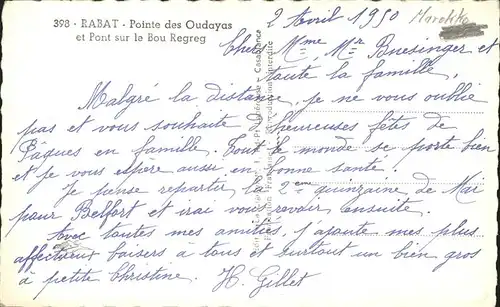 398 - RABAT - Pointe des Oudayas
et Pont sur le Bou Regreg
2 Avril 1950
Marokko
Chers Mme, Mr Buesinger et
toute la famille,
Malgré la distance, je ne vous oublie
pas et vous souhaite d'heureuses fêtes de
Pâques en famille. Tout le monde se porte bien
et je vous espère aussi en bonne santé.
Je pense repartir la 2ème quinzaine de Mai
pour Belfort et irai vous revoir ensuite.
Avec toutes mes amitiés, j'ajoute mes plus
affectueux baisers à tous et surtout un bien gros
à petite Christine. H. Gillet
Casablanca
interdite